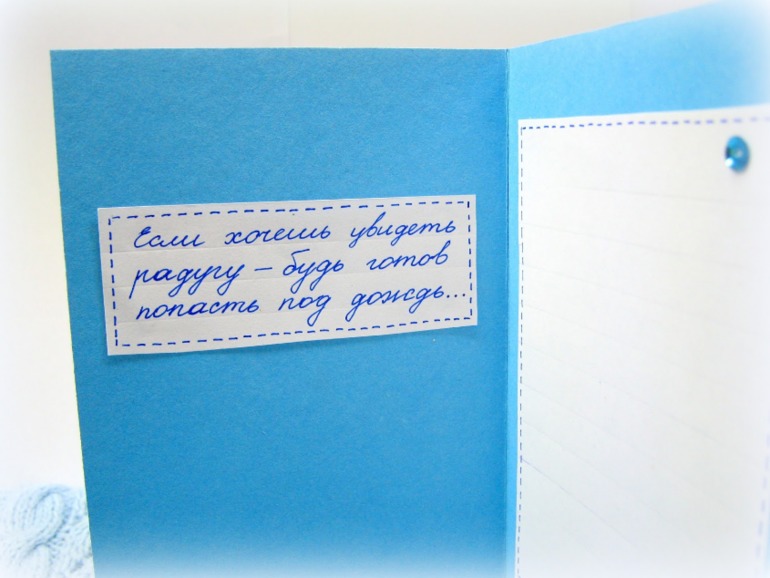 Если хочешь увидеть
радугу – будь готов
попасть под дождь...